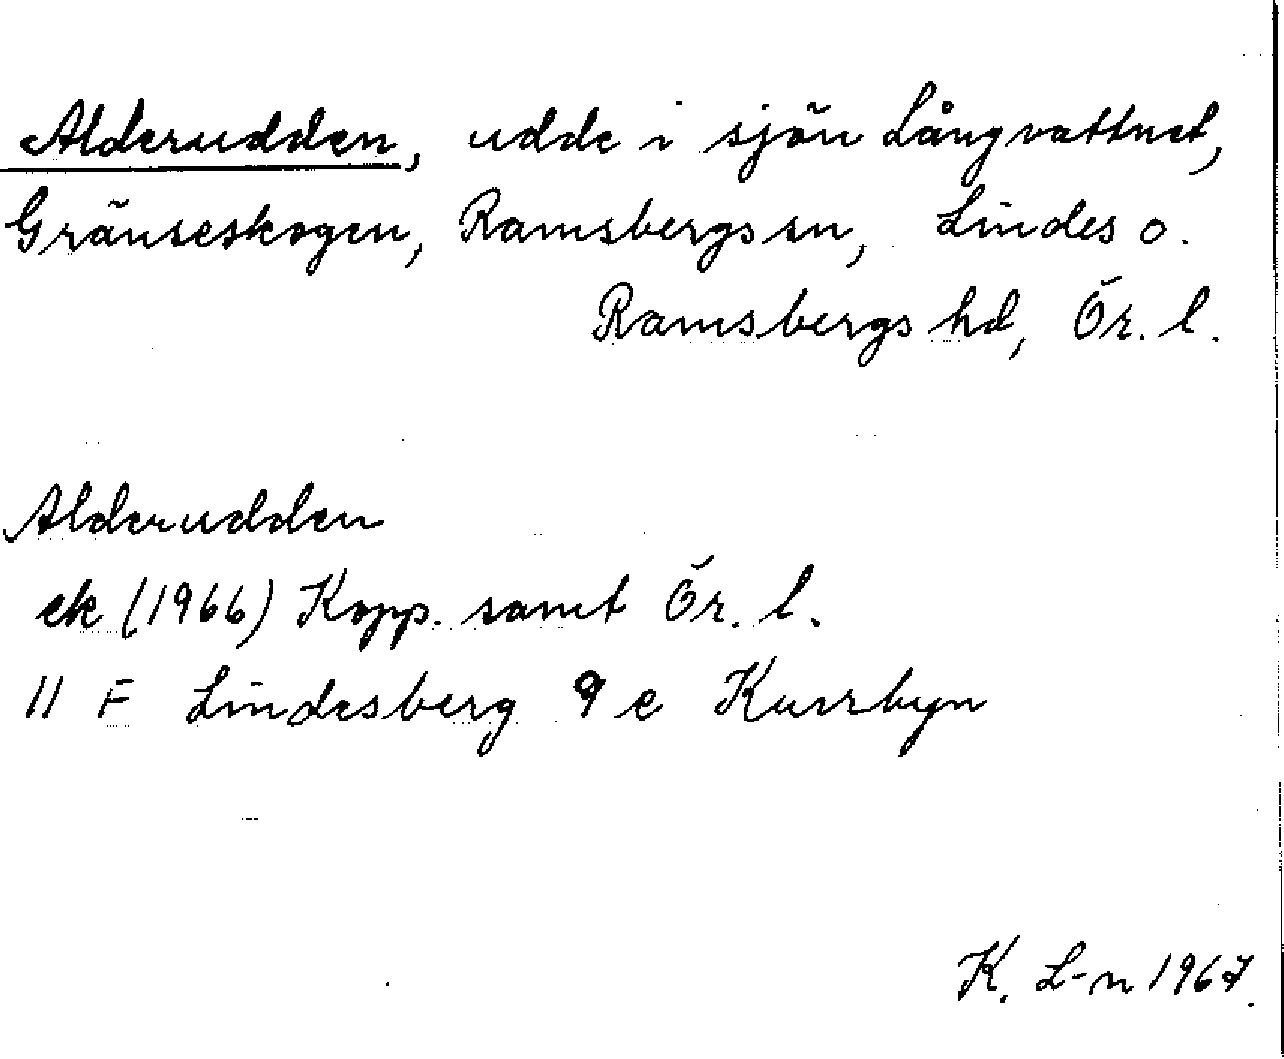 Alderudden, udde i sjön Långvattnet,
Gränseskogen, Ramsbergs sn, Lindes o.
Ramsbergs hd, Ör. l.
Alderudden
ek (1966) Kopp. samt Ör. l.
11 F Lindesberg 9 e Kurrbyn
K. L-n 1967.